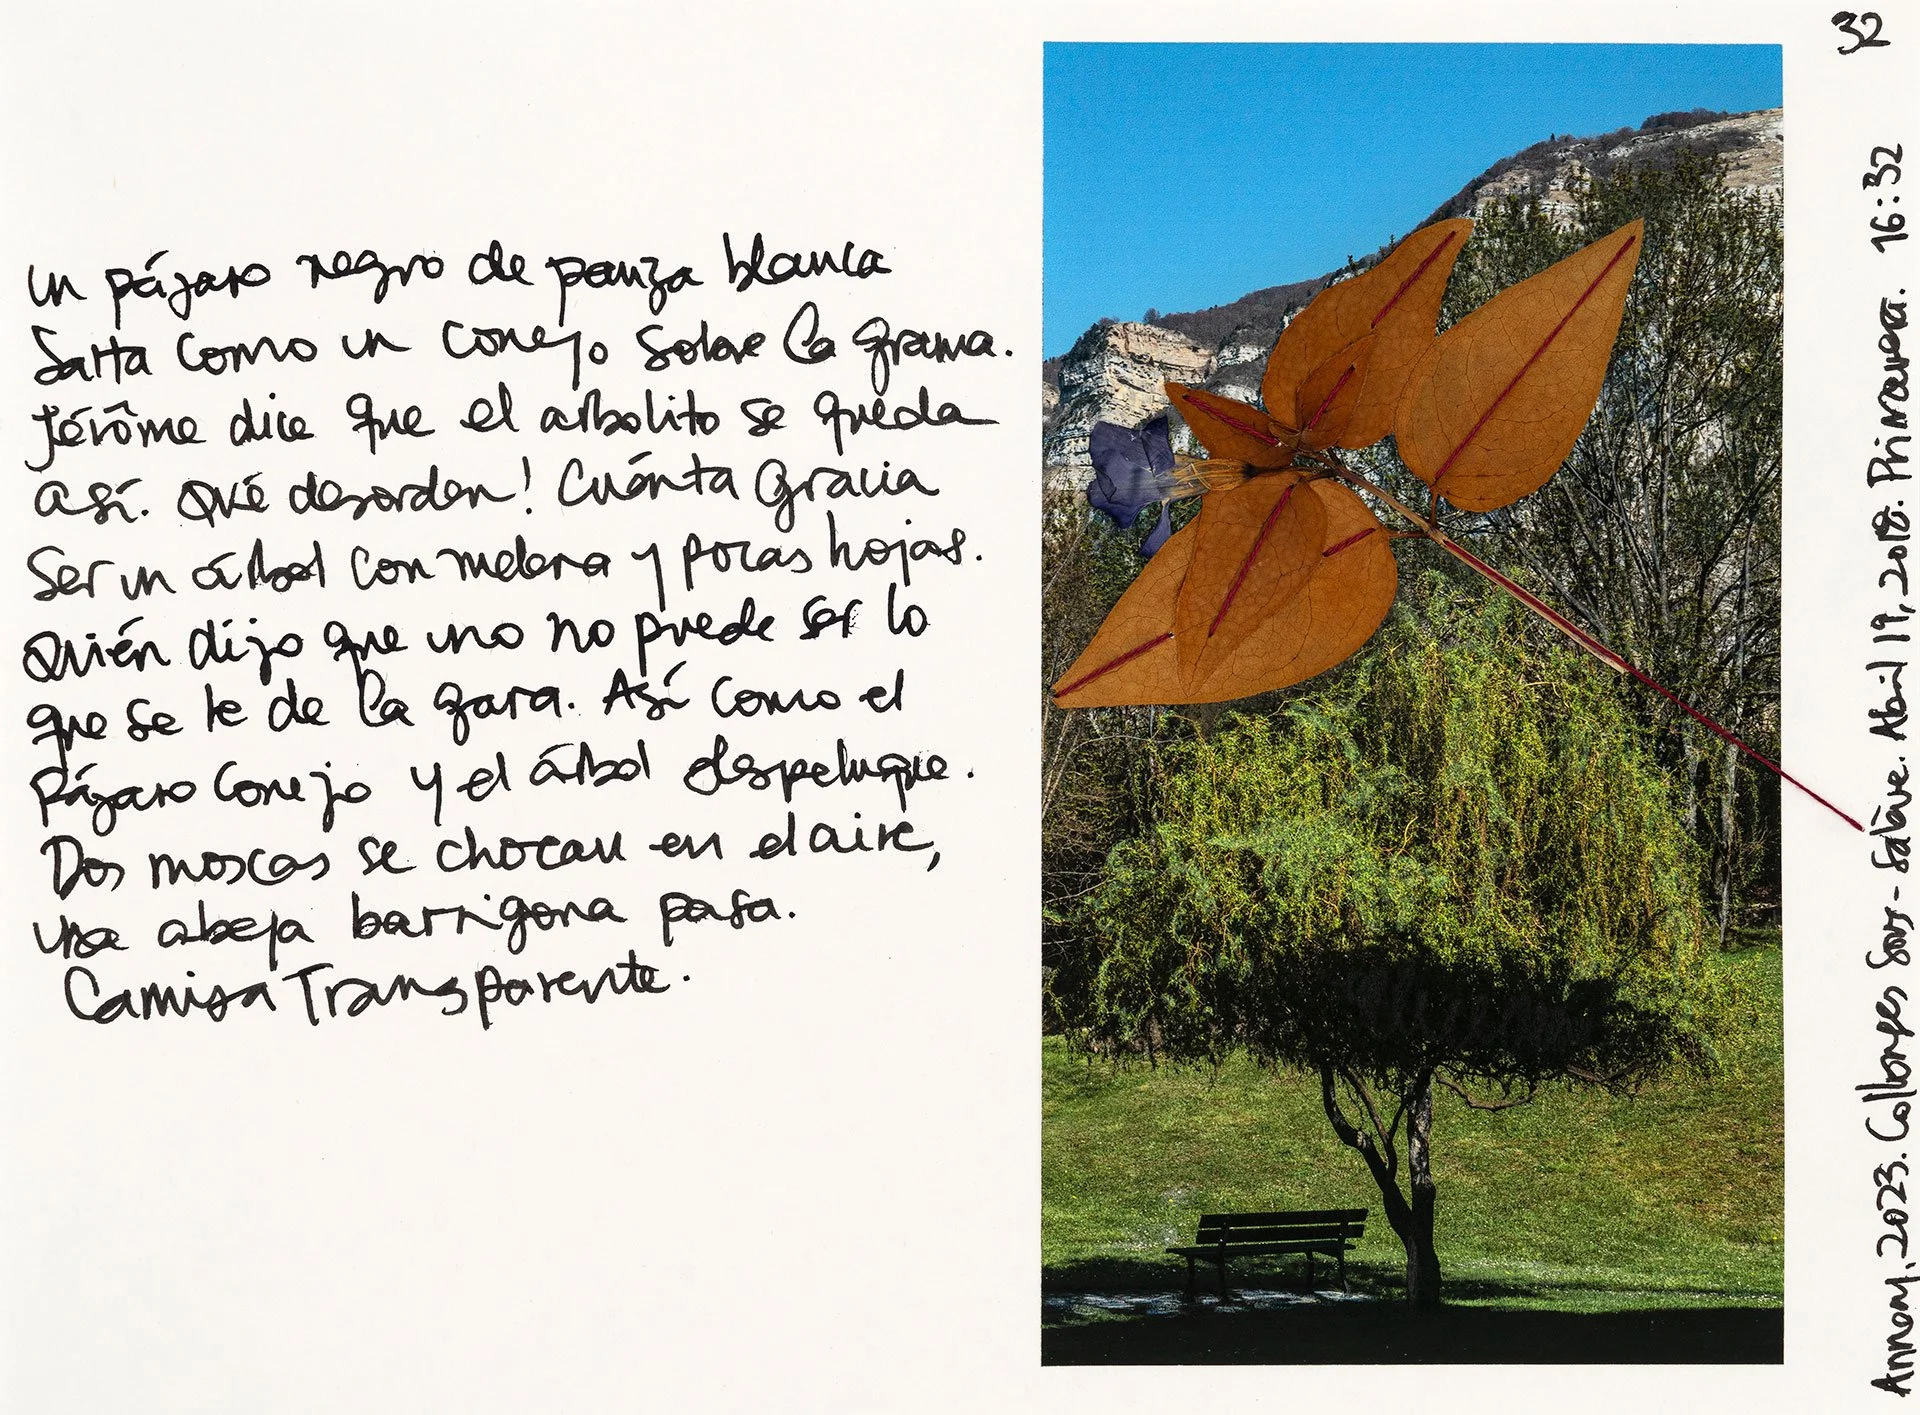 32
un pájaro negro de panza blanca
Salta como un conejo sobre la grama.
Jérôme dice que el arbolito se queda
así. Qué desorden! Cuánta gracia
Ser un árbol con melena y pocas hojas.
Quién dijo que uno no puede ser lo
que se le de la gana. Así como el
pájaro conejo y el árbol despeluque.
Dos moscas se chocan en el aire,
una abeja barrigona pasa.
Camisa Transparente.
2023. Collonges Sous-Salève. Abril 19, 2018. Primavera. 16:32